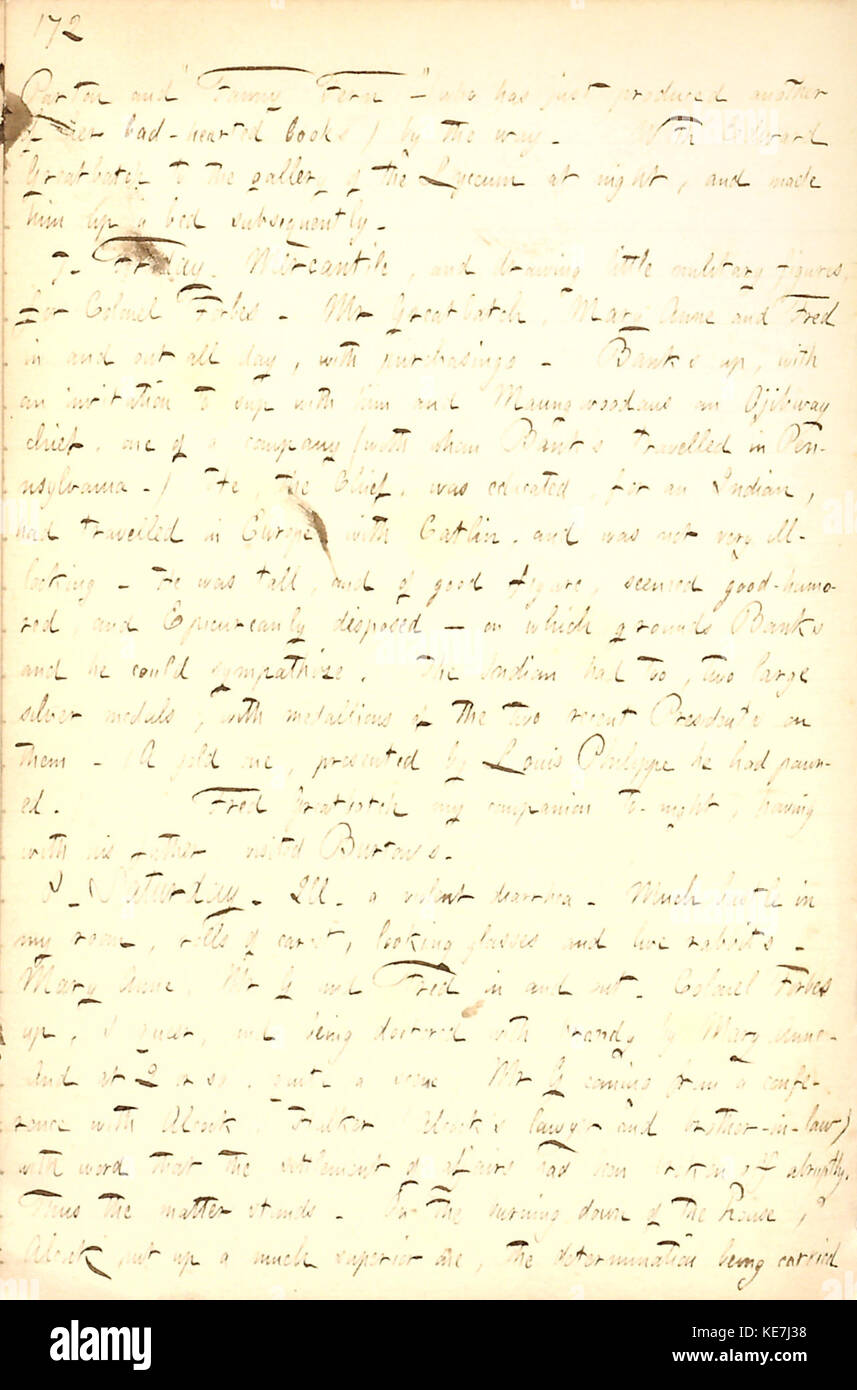 172
Parton and "Fanny Fern" – who has just produced another
of her bad-hearted books) by the way. With Edward
Greatbatch to the gallery of the Lyceum at night, and made
him up a bed subsequently.
7. Friday. Mercantile, and drawing little military figures,
for Colonel Forbes. Mr Greatbatch, Mary Anne and Fred
in and out all day, with purchasings. Banks up, with
an invitation to sup with him and Maungwoodaus an Ojibway
chief, one of a company (with whom Banks travelled in Pen-
nsylvania.) He, the Chief, was educated, for an Indian,
had travelled in Europe with Catlin, and was not very ill-
looking. He was tall, and of good figure, seemed good-humo-
red, and Epicureanly disposed – on which grounds Banks
and he could sympathize. The Indian had too, two large
silver medals, with medallions of the two recent Presidents on
them. (A gold one, presented by Louis Philippe he had pawn-
ed. Fred Greatbatch my companion to-night, having
with his father, visited Burton's.
8. Saturday. Ill. a violent diarrhea. Much bustle in
my room, rolls of carpet, looking glasses and live rabbits.
Mary Anne, Mr G and Fred in and out. Colonel Forbes
up, I queer, and being doctored with brandy by Mary Anne.
And at 2 or so, quite a scene Mr G coming from a confe-
rence with Alcock, (Alcock's lawyer and brother-in-law)
with word that the settlement of affairs had been broken off abruptly.
Thus the matter stands. the burning down of the house,
Alcock put up a much superior one, the determination being carried
alamy
Image ID: KE7J38
www.alamy.com